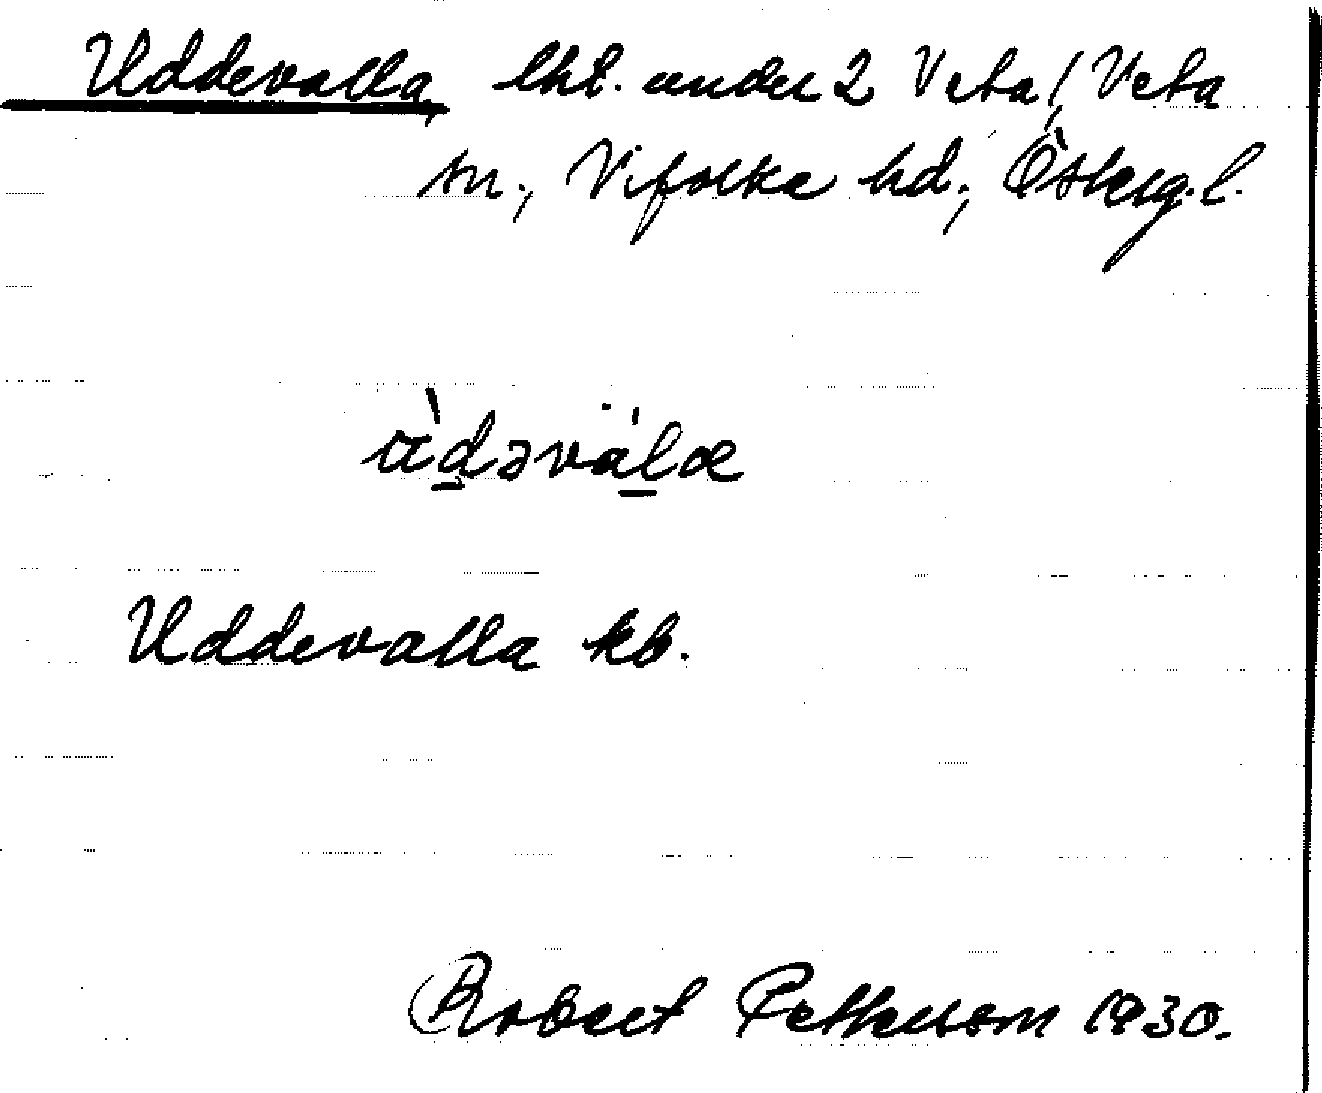 Uddevalla, lht. under 2 Veta, Veta
sn., Vifolka hd., Österg. l.
ùdəválα
Uddevalla kb.
Robert Pettersson 1930.